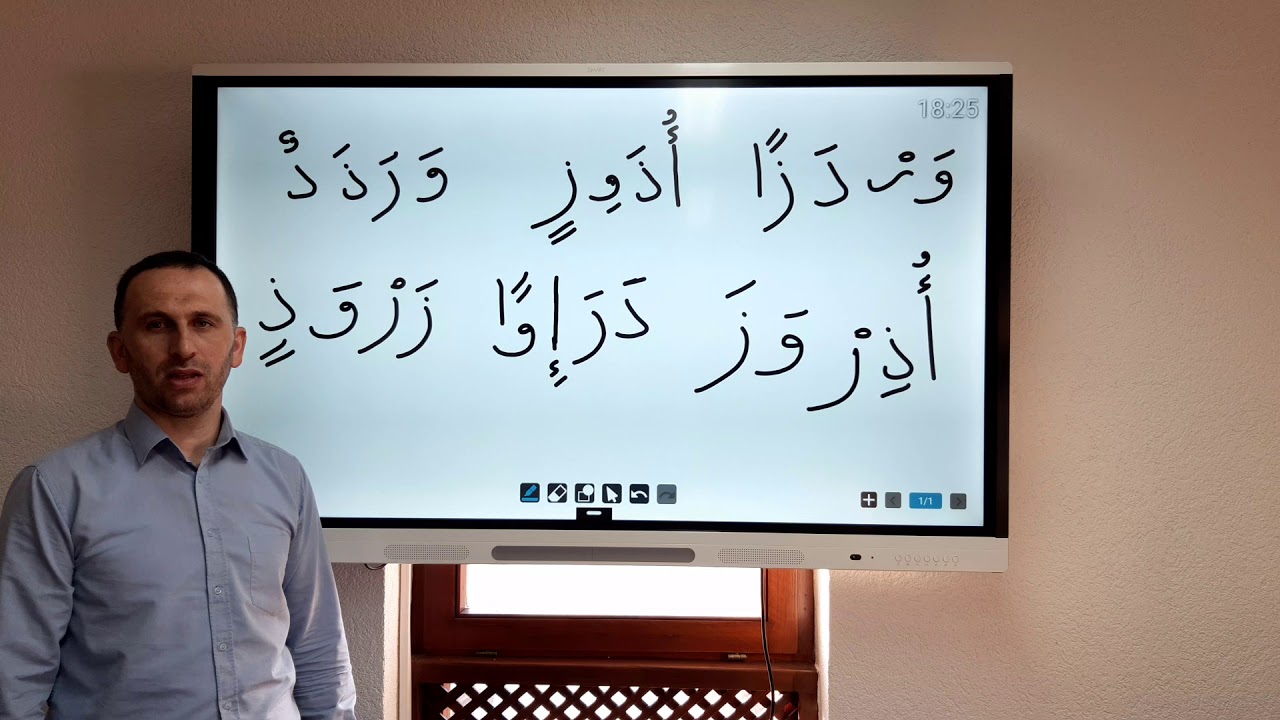 18:25
وَرْدَزًا أُذَوِزٍ وَرَذَدٌ
أُذِرْوَزَ دَرَإِوًا زَرْوَذٍ
1/1